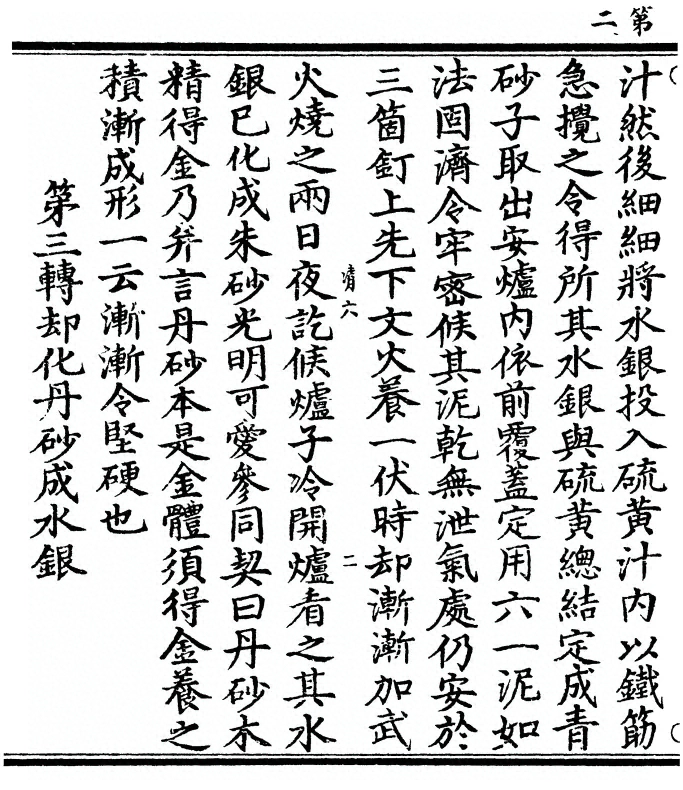 第二
汁然後細細將水銀投入硫黃汁内以鐵筯
急攪之令得所其水銀與硫黃總結定成青
砂子取出安爐内依前覆蓋定用六一泥如
法固濟令牢密候其泥乾無泄氣處仍安於
三箇釘上先下文火養一伏時却漸漸加武
清六
二
火燒之兩日夜訖候爐子冷開爐看之其水
銀已化成朱砂光明可愛參同契曰丹砂木
精得金乃并言丹砂本是金體須得金養之
積漸成形一云漸漸令堅硬也
第三轉却化丹砂成水銀